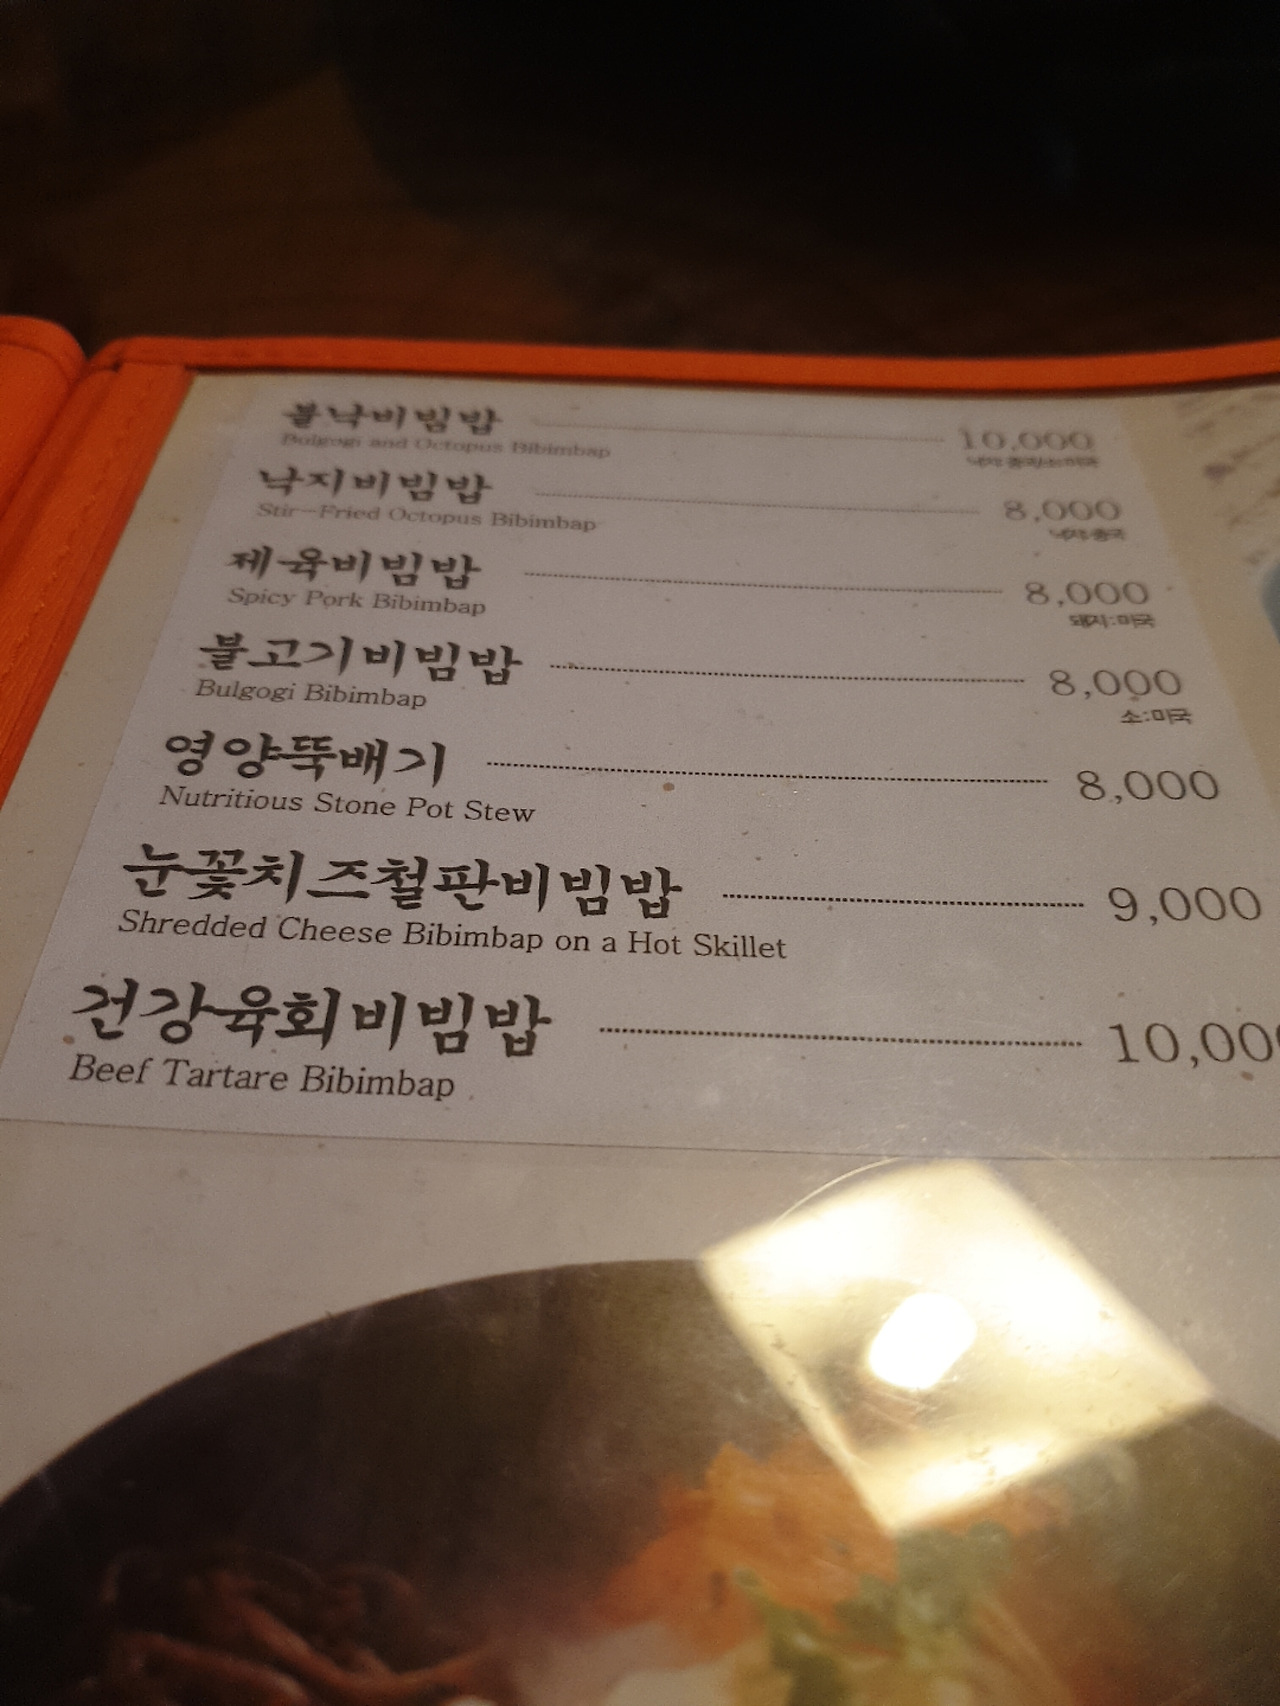 불낙비빔밥 10,000
Bulgogi and Octopus Bibimbap
낙지:중국/소:미국
낙지비빔밥 8,000
Stir-Fried Octopus Bibimbap
낙지:중국
제육비빔밥 8,000
Spicy Pork Bibimbap
돼지:미국
불고기비빔밥 8,000
Bulgogi Bibimbap
소:미국
영양뚝배기 8,000
Nutritious Stone Pot Stew
눈꽃치즈철판비빔밥 9,000
Shredded Cheese Bibimbap on a Hot Skillet
건강육회비빔밥 10,00
Beef Tartare Bibimbap